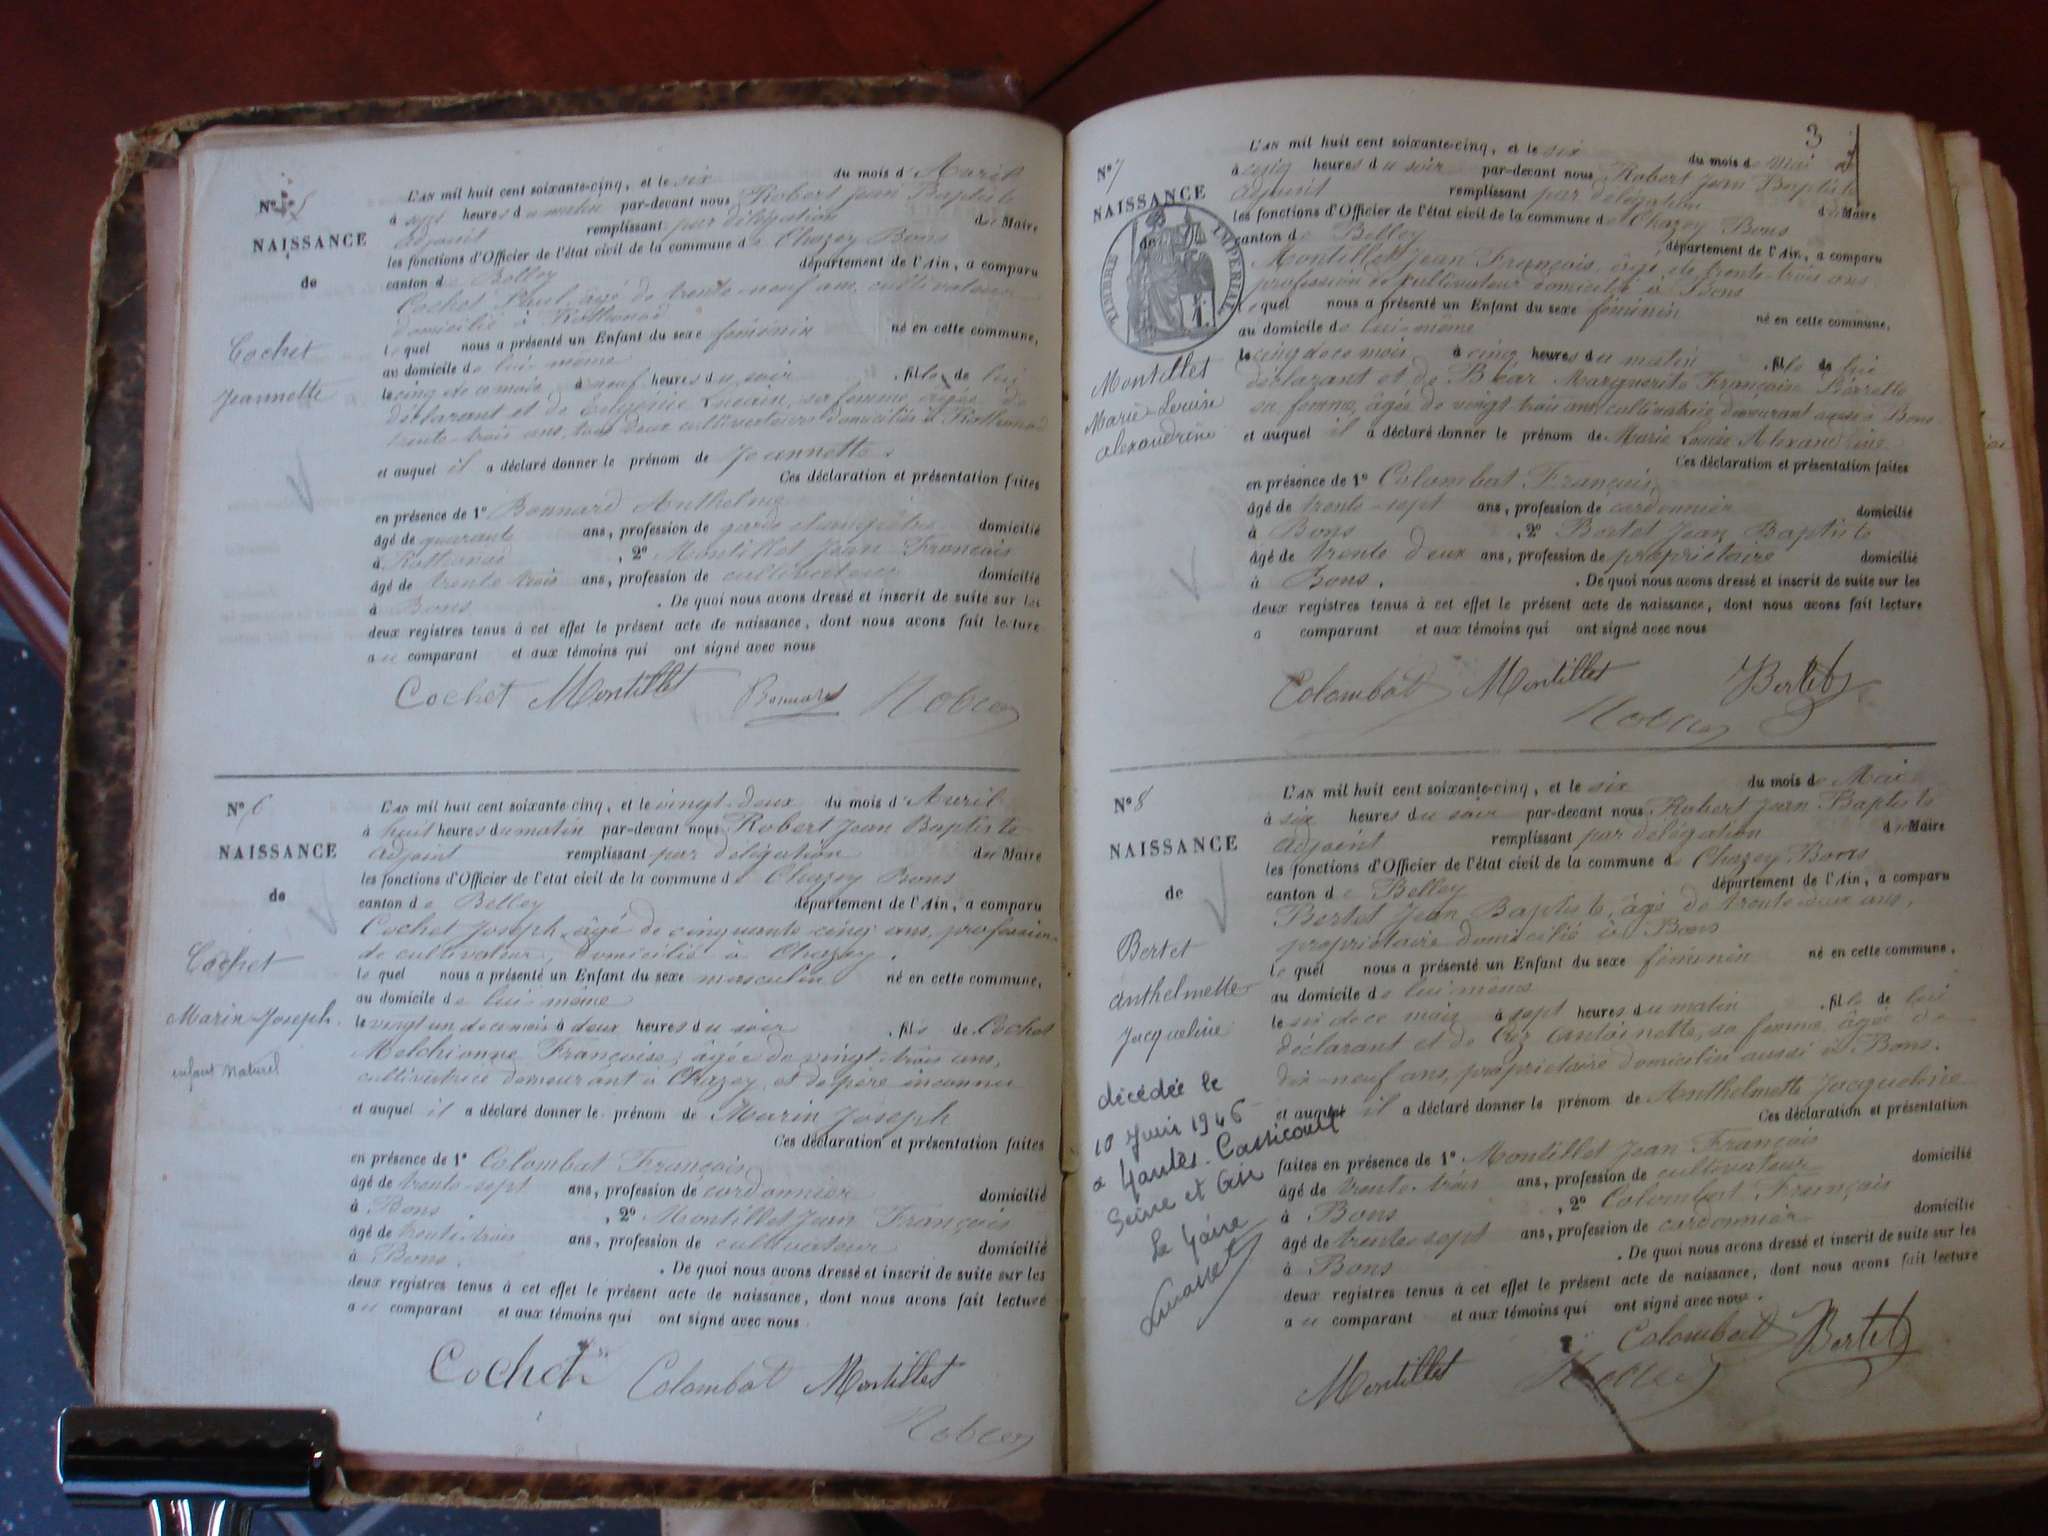 N° 5
NAISSANCE
de
Cochet
Jeannette
L'AN mil huit cent soixante-cinq, et le six du mois d'Avril
à sept heures du matin par-devant nous Robert Jean Baptiste
adjoint remplissant par délégation du Maire
les fonctions d'Officier de l'état civil de la commune de Chazey Bons
canton de Belley département de l'Ain, a comparu
Cochet Paul, âgé de trente-neuf ans, cultivateur
domicilié à Rothonod
le quel nous a présenté un Enfant du sexe féminin né en cette commune,
au domicile de lui-même
le cinq de ce mois à neuf heures du soir, fille de lui
déclarant et de Eugénie Lucain, sa femme, âgée de
trente-trois ans, tous deux cultivateurs domiciliés à Rothonod
et auquel il a déclaré donner le prénom de Jeannette.
Ces déclaration et présentation faites
en présence de 1° Bonnard Anthelme
âgé de quarante ans, profession de garde champêtre domicilié
à Rothonod, 2° Montillet Jean François
âgé de trente trois ans, profession de cultivateur domicilié
à Bons. De quoi nous avons dressé et inscrit de suite sur les
deux registres tenus à cet effet le présent acte de naissance, dont nous avons fait lecture
au comparant et aux témoins qui ont signé avec nous
Cochet Montillet Bonnard
N° 6
NAISSANCE
de
Cochet
Marin-Joseph
enfant Naturel
L'AN mil huit cent soixante-cinq, et le vingt-deux du mois d'Avril
à huit heures du matin par-devant nous Robert Jean Baptiste
adjoint remplissant par délégation du Maire
les fonctions d'Officier de l'état civil de la commune de Chazey Bons
canton de Belley département de l'Ain, a comparu
Cochet Joseph, âgé de cinquante cinq ans, profession
de cultivateur, domicilié à Chazey.
le quel nous a présenté un Enfant du sexe masculin né en cette commune,
au domicile de lui-même
le vingt un de ce mois à deux heures du soir, fils de Cochet
Melchionne Françoise, âgée de vingt-trois ans,
cultivatrice demeurant à Chazey, et de père inconnu
et auquel il a déclaré donner le prénom de Marin Joseph
Ces déclaration et présentation faites
en présence de 1° Colombat François
âgé de trente-sept ans, profession de cordonnier domicilié
à Bons, 2° Montillet Jean François
âgé de trente-trois ans, profession de cultivateur domicilié
à Bons. De quoi nous avons dressé et inscrit de suite sur les
deux registres tenus à cet effet le présent acte de naissance, dont nous avons fait lecture
au comparant et aux témoins qui ont signé avec nous
Cochet Colombat Montillet
3
N° 7
NAISSANCE
de
TIMBRE IMPERIAL
Montillet
Marie-Louise
alexandrine
L'AN mil huit cent soixante-cinq, et le six du mois de mai
à cinq heures du soir par-devant nous Robert Jean Baptiste
adjoint remplissant par délégation du Maire
les fonctions d'Officier de l'état civil de la commune de Chazey Bons
canton de Belley département de l'Ain, a comparu
Montillet Jean François, âgé de trente-trois ans
profession de cultivateur domicilié à Bons
le quel nous a présenté un Enfant du sexe féminin né en cette commune,
au domicile de lui-même
le cinq de ce mois à cinq heures du matin, fille de lui
déclarant et de Béar Marguerite Françoise Pierrette
sa femme, âgée de vingt trois ans cultivatrice demeurant aussi à Bons
et auquel il a déclaré donner le prénom de Marie Louise Alexandrine
Ces déclaration et présentation faites
en présence de 1° Colombat François
âgé de trente-sept ans, profession de cordonnier domicilié
à Bons, 2° Bertet Jean Baptiste
âgé de trente deux ans, profession de propriétaire domicilié
à Bons. De quoi nous avons dressé et inscrit de suite sur les
deux registres tenus à cet effet le présent acte de naissance, dont nous avons fait lecture
a comparant et aux témoins qui ont signé avec nous
Colombat Montillet Bertet
N° 8
NAISSANCE
de
Bertet
anthelmette
Jacqueline
décédée le
10 Juin 1946
a Mantes-Gassicourt
Seine et Oise
Le Maire
L'AN mil huit cent soixante-cinq, et le six du mois de Mai
à six heures du soir par-devant nous Robert Jean Baptiste
adjoint remplissant par délégation du Maire
les fonctions d'Officier de l'état civil de la commune de Chazey Bons
canton de Belley département de l'Ain, a comparu
Bertet Jean Baptiste, âgé de trente-deux ans,
propriétaire domicilié à Bons
le quel nous a présenté un Enfant du sexe féminin né en cette commune,
au domicile de lui-même
le six de ce mois à sept heures du matin, fille de lui
déclarant et de Antoinette, sa femme âgée de
dix-neuf ans, propriétaire domiciliée aussi à Bons.
et auquel il a déclaré donner le prénom de Anthelmette Jacqueline
Ces déclaration et présentation
faites en présence de 1° Montillet Jean François
âgé de trente-trois ans, profession de cultivateur domicilié
à Bons, 2° Colombat François
âgé de trente sept ans, profession de cordonnier domicilié
à Bons. De quoi nous avons dressé et inscrit de suite sur les
deux registres tenus à cet effet le présent acte de naissance, dont nous avons fait lecture
au comparant et aux témoins qui ont signé avec nous.
Colombat Bertet
Montillet